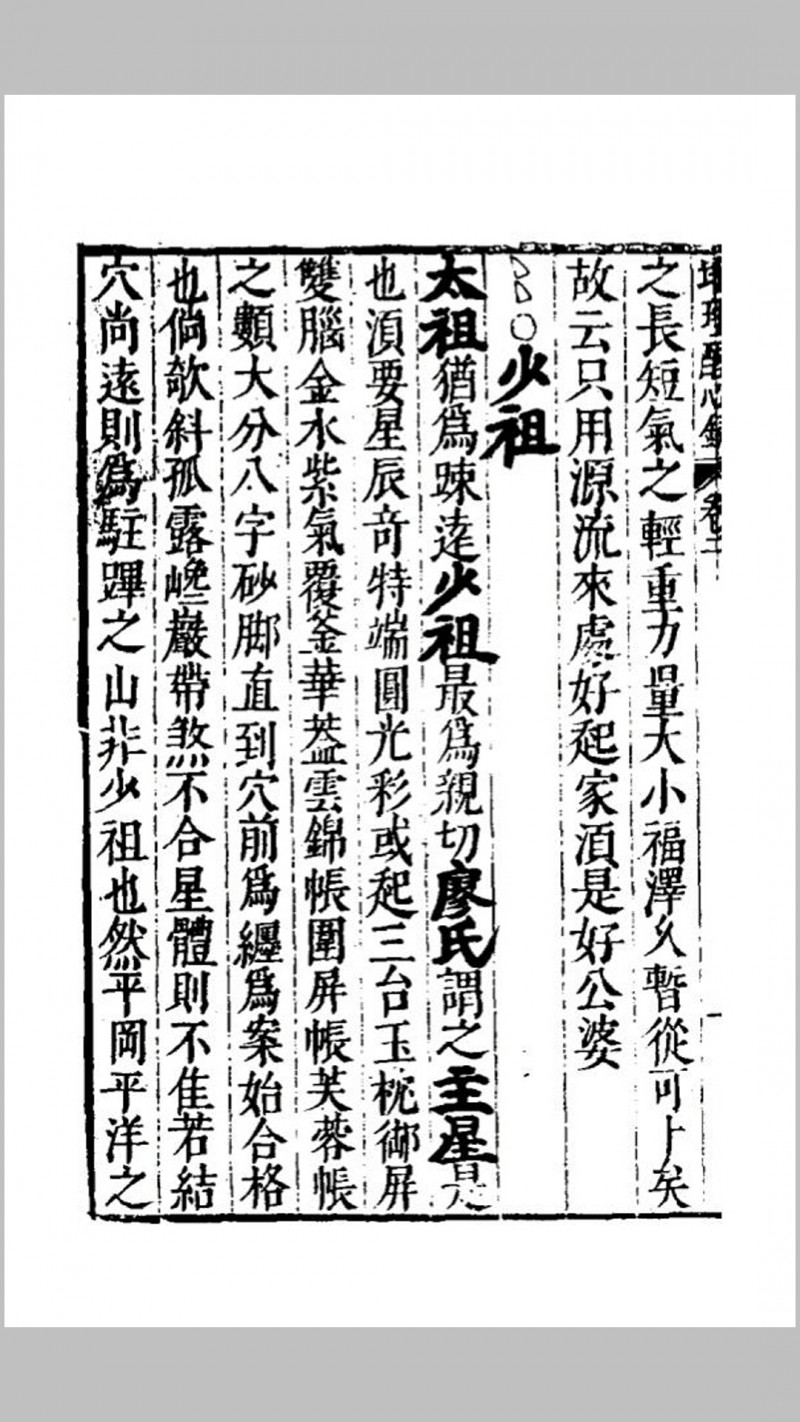 地理醒心錄 卷二
之長短氣之輕重力量大小福澤久暫從可卜矣
故云只用源流來處好起家湏是好公婆
少祖
太祖猶爲踈逺少祖最爲親切廖氏謂之主星是
也湏要星辰竒特端圓光彩或起三台玉枕御屏
雙腦金水紫氣覆釜華葢雲錦帳圍屏帳芙蓉帳
之𩔖大分八字砂脚直到穴前爲纒爲案始合格
也倘欹斜孤露巉巖帶煞不合星體則不佳若結
穴尚遠則爲駐蹕之山非少祖也然平岡平洋之